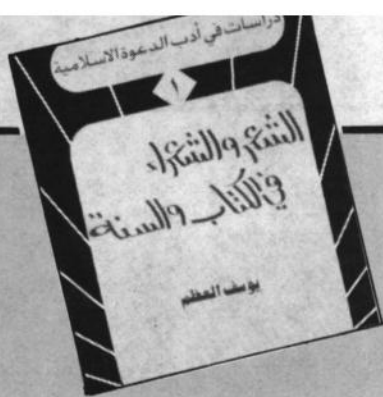 دراسات في أدب الدعوة الاسلامية
١
الشعر والشعراء
في الكتاب والسنة
يوسف العظم